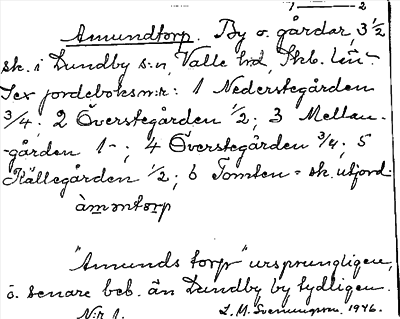 1 — 2
Amundtorp. By o. gårdar, 3 1/2
sk. i Dundby s:n, Valle hd, Skb. län.
Sex jordeboksnr: 1 Nederstegården
3/4; 2 Överstegården 1/2; 3 Mellan-
-gården 1-; 4 Överstegården 3/4; 5
Källegården 1/2; 6 Tomten = sk. utjord.
àməntɔrp
"Amunds torp" ursprungligen,
o. senare beb. än Dundby by tydligen.
N:r 1. L. M. Svenungsson. 1946.